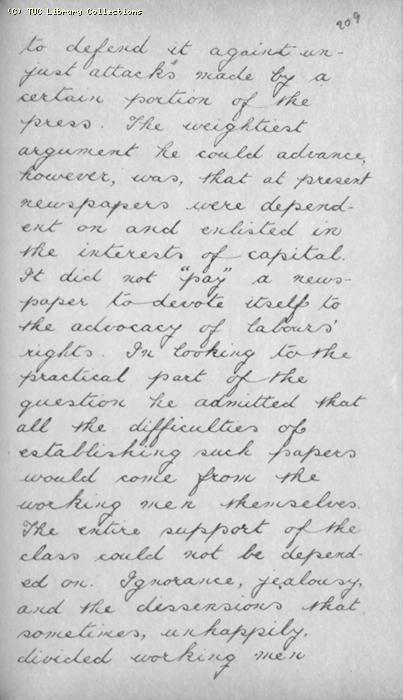 (C) TUC Library Collections
209
to defend it against un-
just attacks made by a
certain portion of the
press. The weightiest
argument he could advance,
however, was, that at present
newspapers were depend-
ent on and enlisted in
the interests of capital.
It did not "pay" a news-
paper to devote itself to
the advocacy of labours'
rights. In looking to the
practical part of the
question he admitted that
all the difficulties of
establishing such papers
would come from the
working men themselves.
The entire support of the
class could not be depend-
ed on. Ignorance, jealousy,
and the dissensions that
sometimes, unhappily,
divided working men